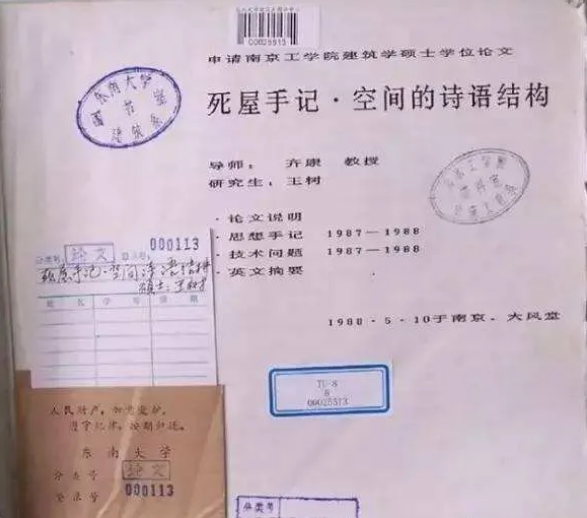 00025513
申请南京工学院建筑学硕士学位论文
死屋手记·空间的诗语结构
导师： 齐康 教授
研究生：王树
·论文说明
·思想手记 1987—1988
·技术问题 1987—1988
·英文摘要
1988·5·10于南京·大风堂
东南大学
图书室
建筑系
000113
分类号 论文 登录号
死屋手记·空间
硕士
姓名 学号 日期
TU-8
8
00025513
人民财产，加意爱护，
遵守纪律，按期归还。
东南大学
分类号 论文
登录号 000113
分类号